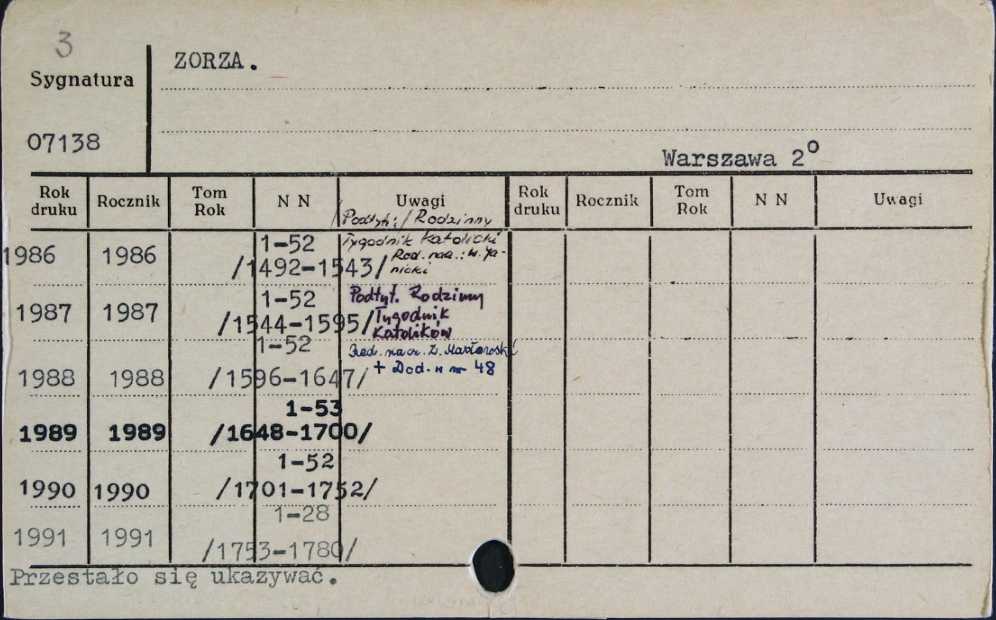 3
ZORZA.
Sygnatura
07138
Warszawa 2°
Rok druku Rocznik Tom Rok N N Uwagi Rok druku Rocznik Tom Rok N N Uwagi
/Podtyt:/ Rodzinny
1986 1986 1-52 Tygodnik Katolicki
/1492-1543/ Red. nacz.: W. Ja-
nicki
1987 1987 1-52 Podtyt. Rodzinny
/1544-1595/ Tygodnik
Katolików
1-52 Red. nacz. Z.
1988 1988 /1596-1647/ + Dod. w nr 48
1-53
1989 1989 /1648-1700/
1-52
1990 1990 /1701-1752/
1-28
1991 1991 /1753-1780/
Przestało się ukazywać.